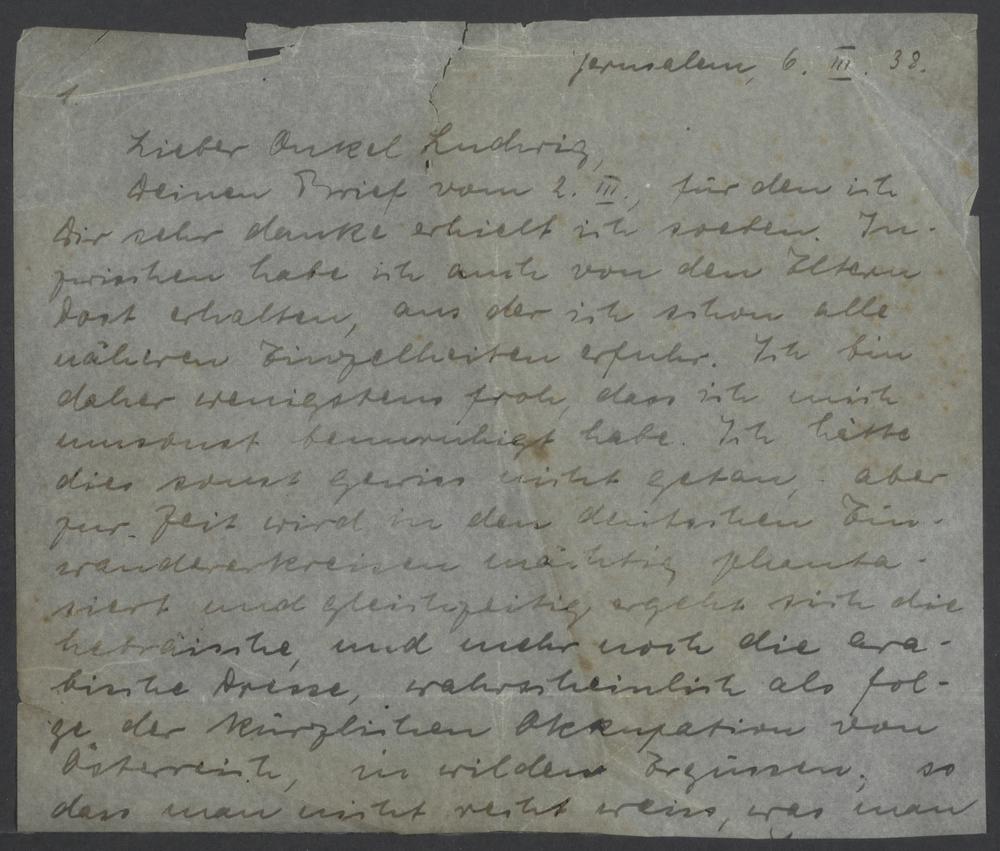 Jerusalem, 6. III. 38.
1.
Lieber Onkel Ludwig,
Deinen Brief vom 2. III., für den ich
Dir sehr danke erhielt ich soeben. In-
zwischen habe ich auch von den Eltern
Post erhalten, aus der ich schon alle
näheren Einzelheiten erfuhr. Ich bin
daher wenigstens froh, dass ich mich
umsonst beunruhigt habe. Ich hätte
dies sonst gewiss nicht getan, aber
zur Zeit wird in den deutschen Ein-
wandererkreisen mächtig phanta-
siert und gleichzeitig ergeht sich die
hebräische, und mehr noch die ara-
bische Presse, wahrscheinlich als Fol-
ge der kürzlichen Okkupation von
Österreich, in wilden Ergüssen, so
dass man nicht recht weiss, was man